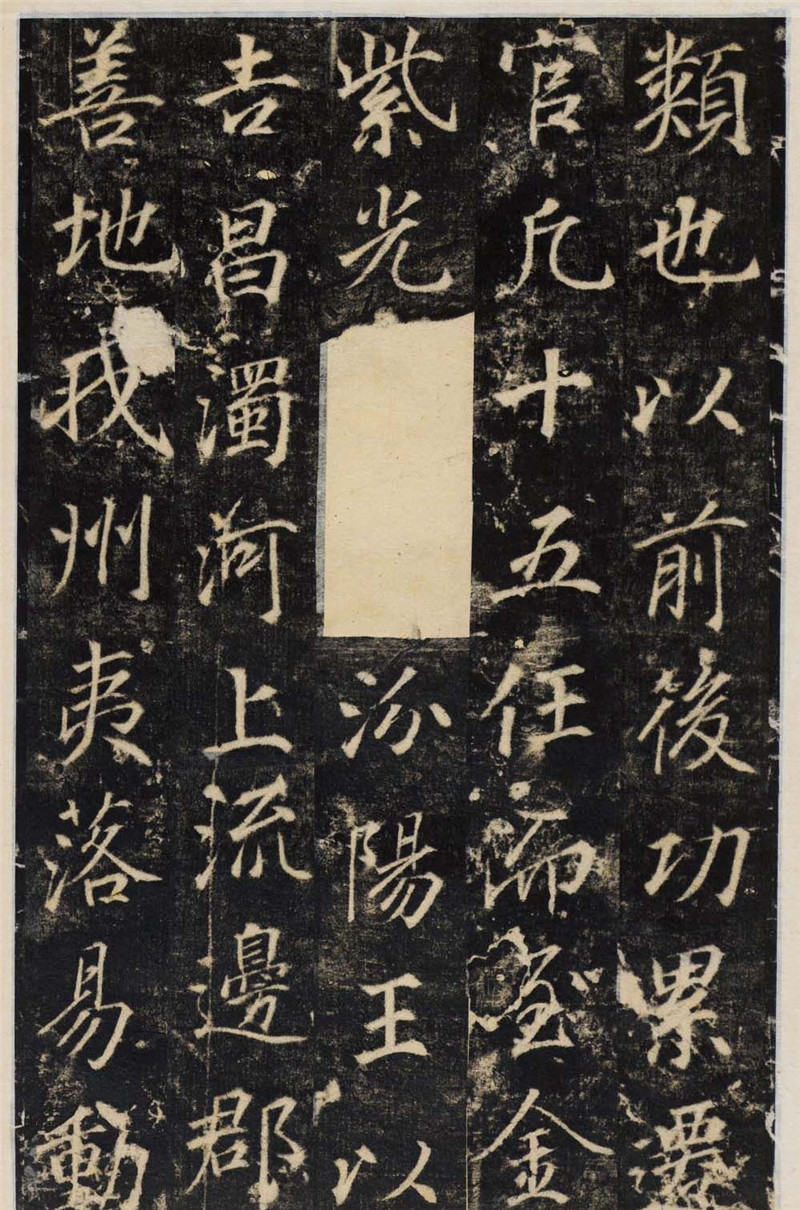 類也以前後功累遷
官凡十五任而至金
紫光汾陽王以
吉昌濁河上流邊郡
善地我州夷落易動